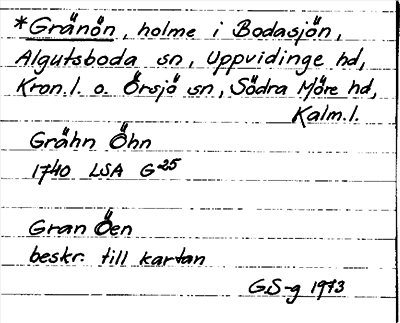 *Gränön, holme i Bodasjön,
Algutsboda sn, Uppvidinge hd,
Kron.l. o. Örsjö sn, Södra Möre hd,
Kalm.l.
Grähn Öhn
1740 LSA G25
Gran Öen
beskr. till kartan
GS-g 1973